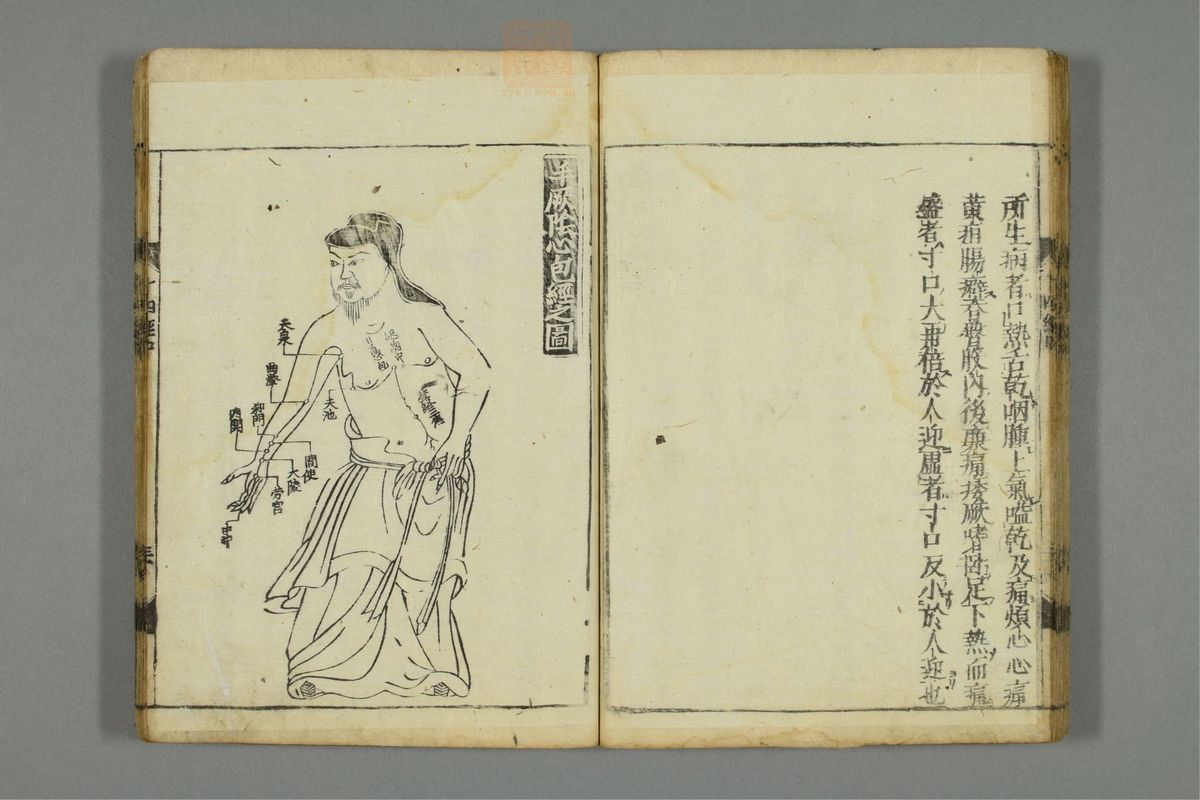 所生病者口熱舌乾咽腫上氣嗌乾及痛煩心心痛
黄疸腸癖脊臀股內後廉痛痿厥嗜卧足下熱而痛
盛者寸口大再倍於人迎虛者寸口反小於人迎也
手厥陰心包經之圖
天泉
曲澤
郄門
內關
天池
間使
大陵
劳宮
中冲
十四經